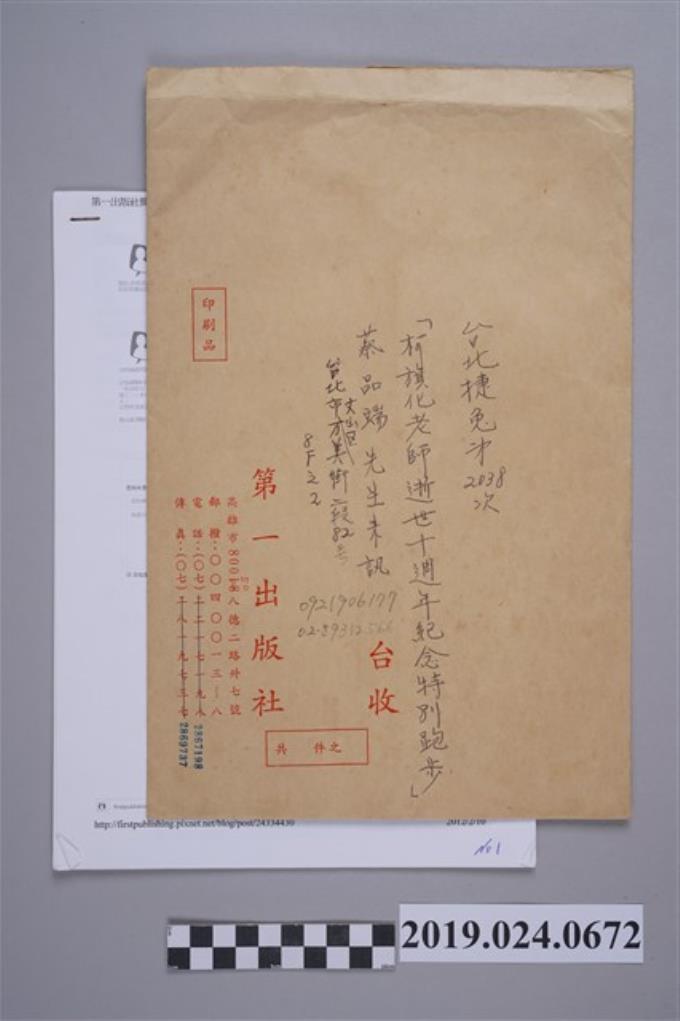 台北捷兔第2038次
「柯旗化老師逝世十週年紀念特別跑步」
蔡品端先生來訊
台北市文山區萬美街二段82号
8F之2
0921906177
02-89312566
台收
印刷品
第一出版社
高雄市80050八德二路37七號
郵撥:〇〇四〇〇一三—八
電話:(〇七)二一七一九八
2867198
傳真:(〇七)二八一九七三七
2869737
共 件之
第一出版社
http://firstpublishing.pixnet.net/blog/post/24334430
2012/2/10
No 1
2019.024.0672